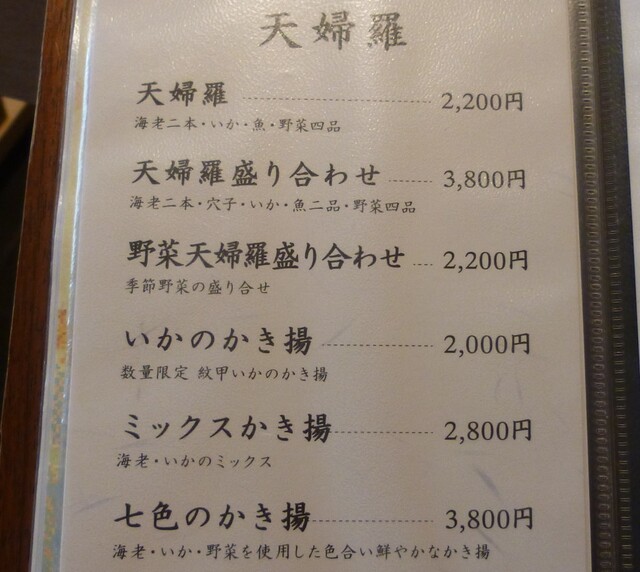 天婦羅
天婦羅 2,200円
海老二本・いか・魚・野菜四品
天婦羅盛り合わせ 3,800円
海老二本・穴子・いか・魚二品・野菜四品
野菜天婦羅盛り合わせ 2,200円
季節野菜の盛り合せ
いかのかき揚 2,000円
数量限定 紋甲いかのかき揚
ミックスかき揚 2,800円
海老・いかのミックス
七色のかき揚 3,800円
海老・いか・野菜を使用した色合い鮮やかなかき揚